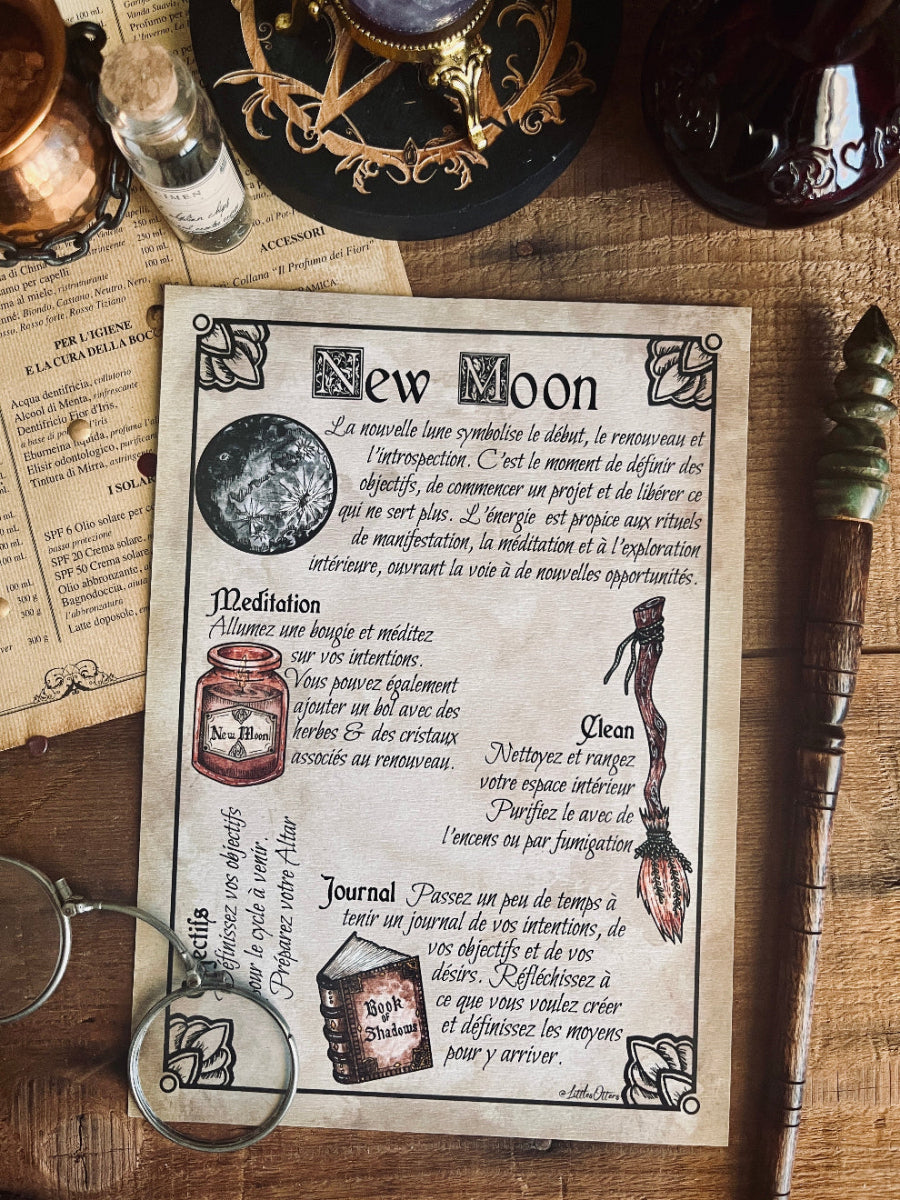 100 mL
Vanda Suavis,
Profumo per
L'Inverno, La
IMEN
250 mL
250 m
100 mL
100 mL
ACCESSORI
Collana "Il Profumo dei Fiori"
di China
amo per capelli
ma al miele, ristrutturante
Biondo, Castano, Neutro, Nero,
Rosso, Rosso forte, Rosso Tiziano
PER L'IGIENE
E LA CURA DELLA BOCC
Acqua dentifricia, collutorio
Alcool di Menta, rinfrescante
Dentifricio Fior d'Iris,
a base di polvere d'iris
Eburneina liquida, profuma l'a
Elisir odontologico, purificar
Tintura di Mirra, astringen
I SOLAR
SPF 6 Olio solare per c
bassa protezione
SPF 20 Crema solare,
SPF 50 Crema solare,
Olio abbronzante,
Bagnodoccia, aiuta
l'abbronzatura
Latte doposole,
100 mL
300 g
300 g
300 g
New Moon
La nouvelle lune symbolise le début, le renouveau et
l'introspection. C'est le moment de définir des
objectifs, de commencer un projet et de libérer ce
qui ne sert plus. L'énergie est propice aux rituels
de manifestation, la méditation et à l'exploration
intérieure, ouvrant la voie à de nouvelles opportunités.
Meditation
Allumez une bougie et méditez
sur vos intentions.
Vous pouvez également
ajouter un bol avec des
herbes & des cristaux
associés au renouveau.
New Moon
Clean
Nettoyez et rangez
votre espace intérieur
Purifiez le avec de
l'encens ou par fumigation
ectifs
Définissez vos objectifs
pour le cycle à venir.
Préparez votre Altar
Journal Passez un peu de temps à
tenir un journal de vos intentions, de
vos objectifs et de vos
désirs. Réfléchissez à
ce que vous voulez créer
et définissez les moyens
pour y arriver.
Book
of
Shadows
@LittlesOtters